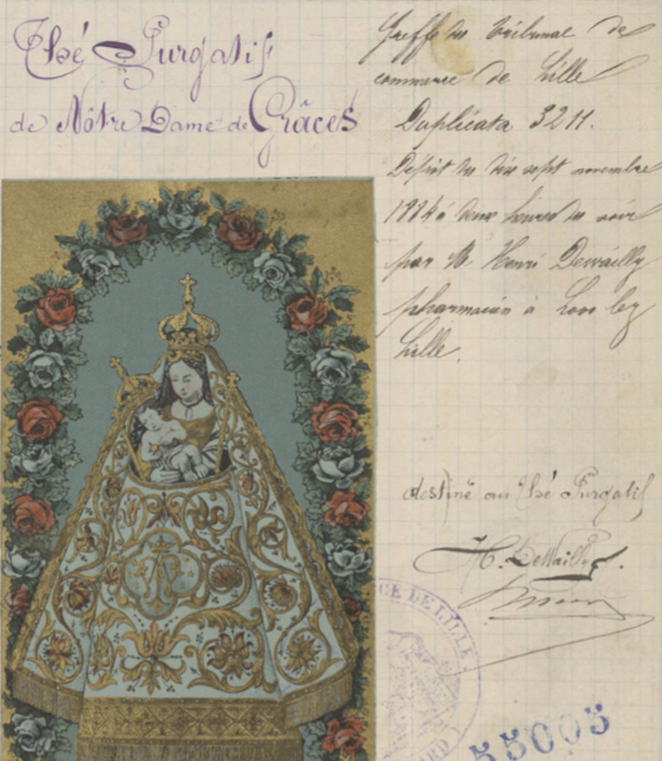 Thé Purgatif
de Nôtre Dame de Grâces
Greffe du tribunal de
commerce de Lille
Duplicata 3211.
Dépôt du dix sept novembre
1884 à deux heures du soir
par M. Henri Dewailly
pharmacien à Loos lez
Lille.
destiné au thé Purgatif
H. Dewailly.
CE DE LILLE
55005